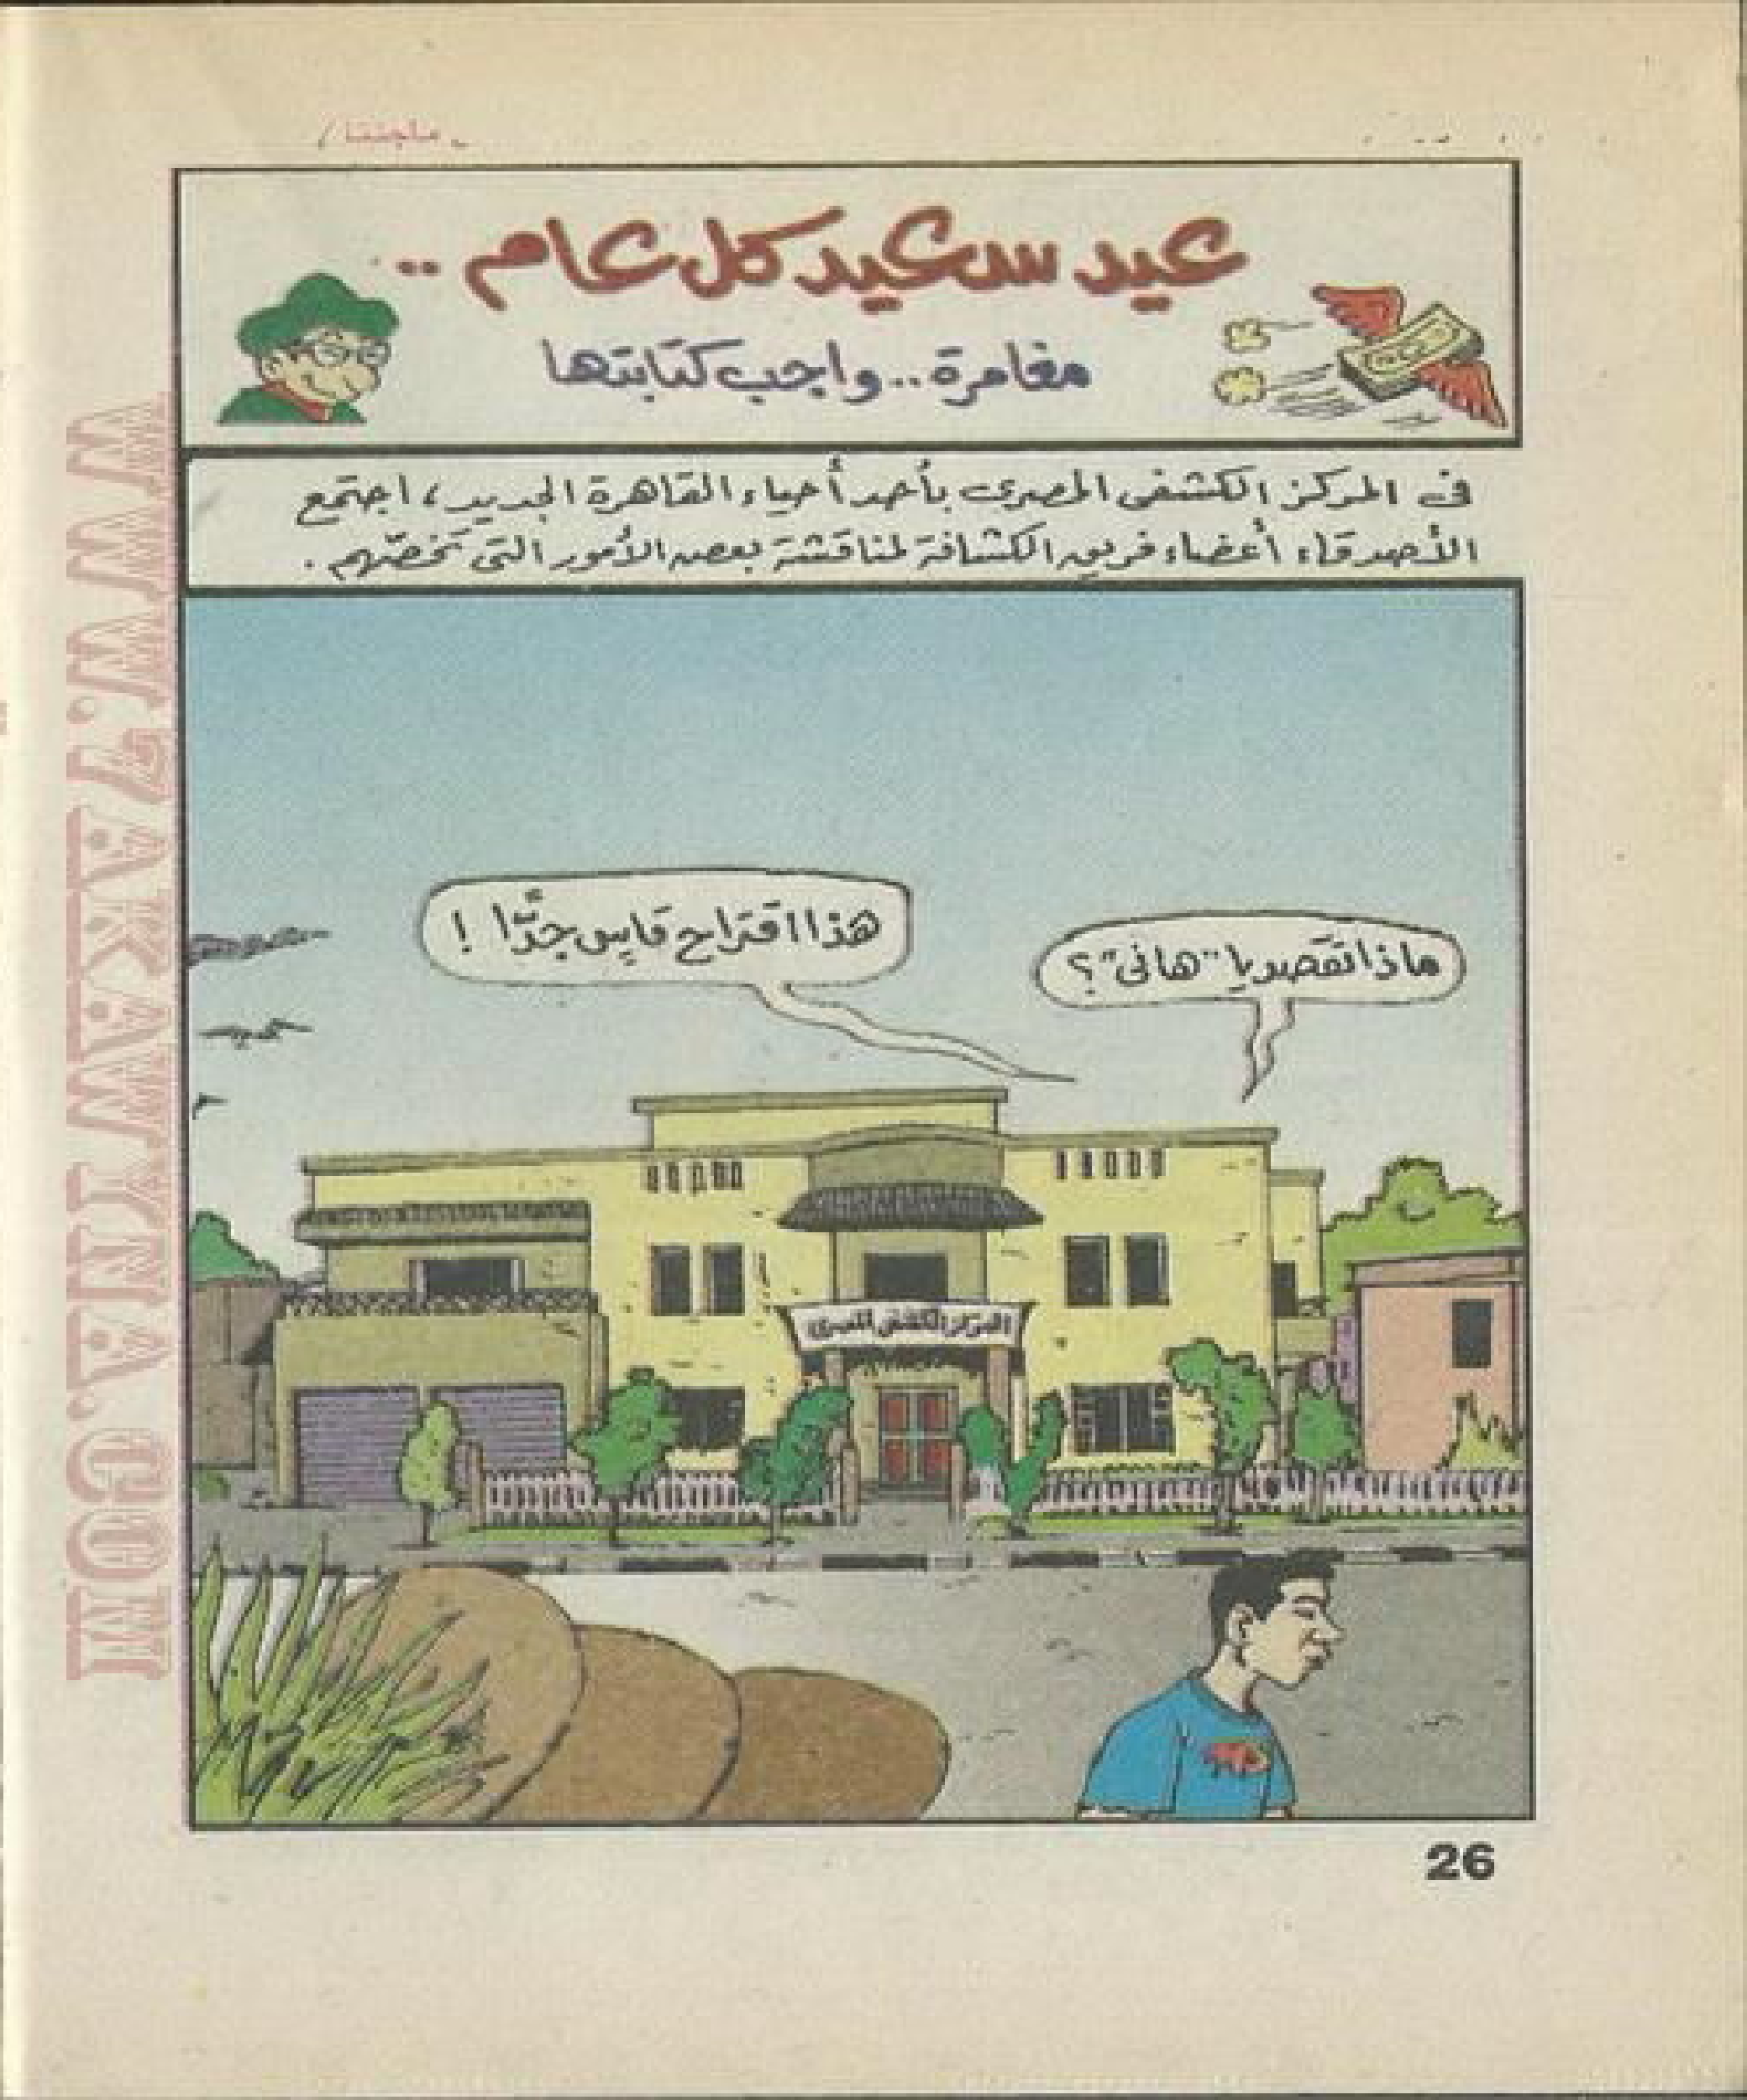 عيد سعيد كل عام ..
مغامرة .. واجب كتابتها
فى المركز الكشفى المصرى بأحد أحياء القاهرة الجديد، اجتمع
الأصدقاء أعضاء فريق الكشافة لمناقشة بعض الأمور التى تخصّهم .
ماذا تقصد يا "هانى"؟
هذا اقتراح قاسٍ جدًّا !
المركز الكشفى المصرى
26
WWW.7AKAWYNA.COM